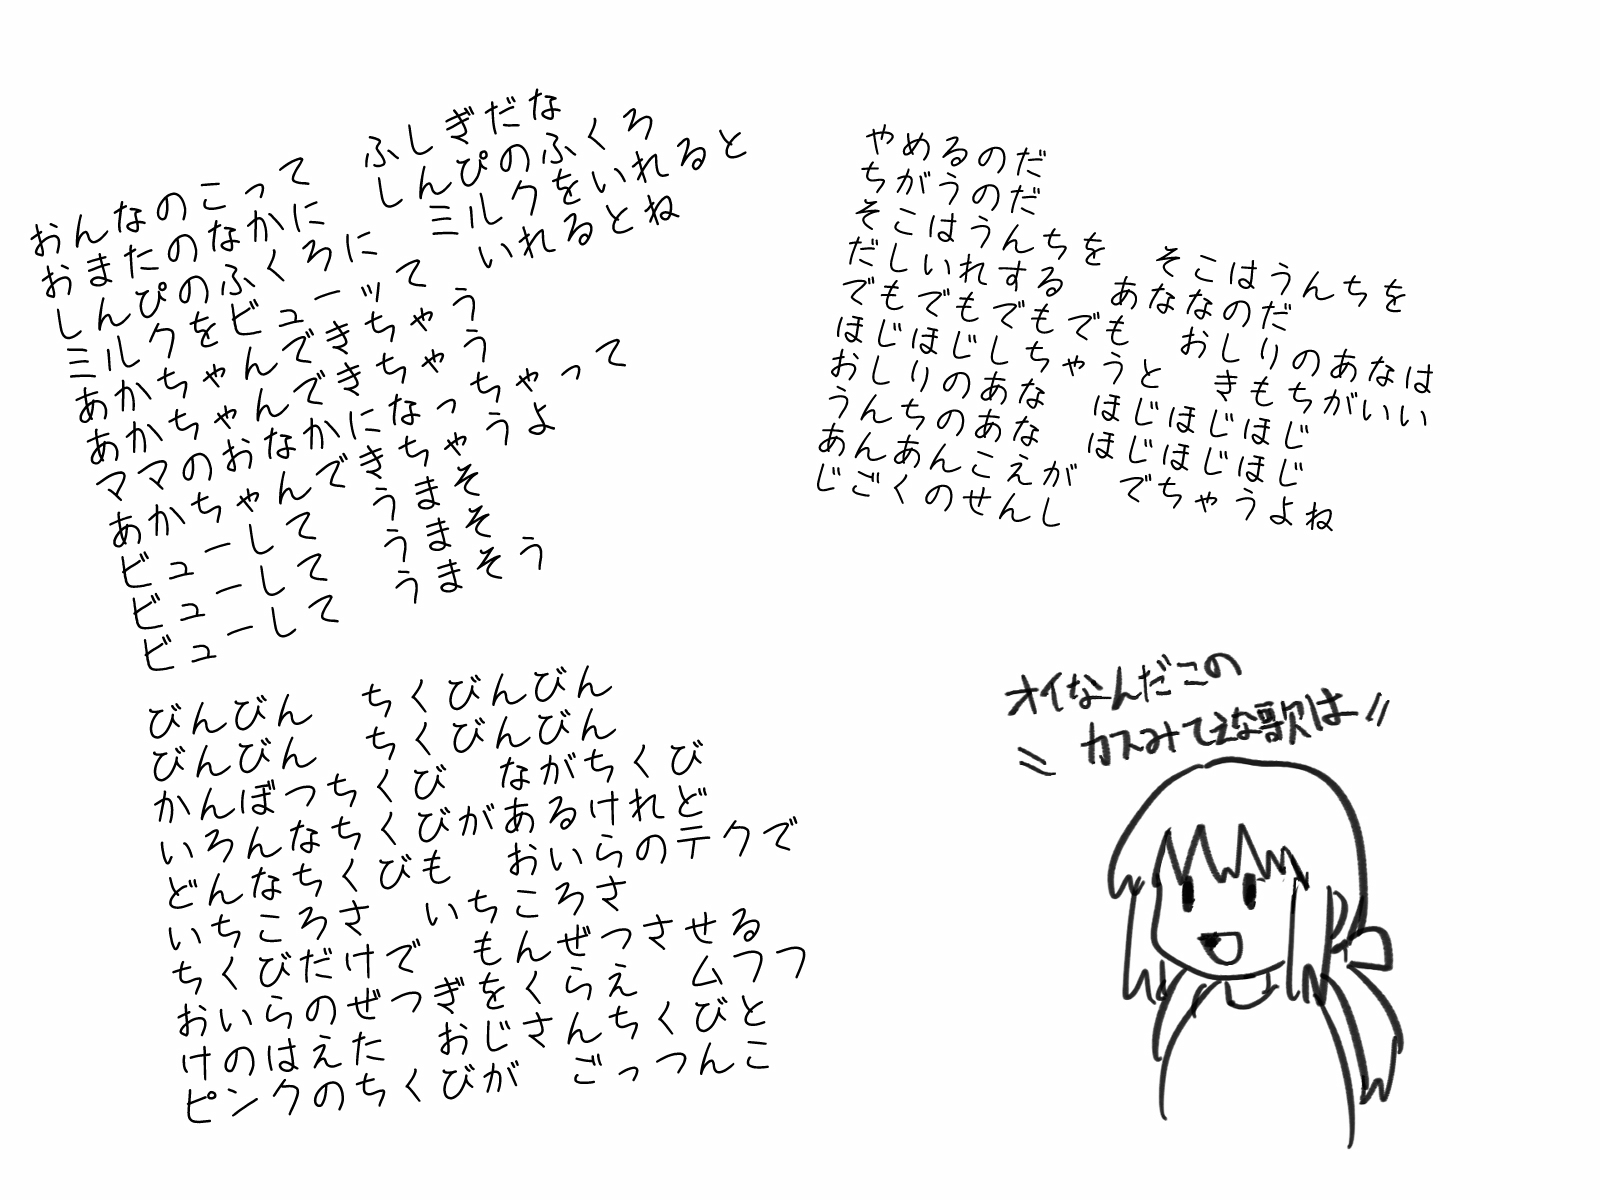 おんなのこって　ふしぎだな
おまたのなかに　しんぴのふくろ
しんぴのふくろに　ミルクをいれると
ミルクをビューッて　いれるとね
あかちゃんできちゃう
あかちゃんできちゃう
ママのおなかになっちゃって
あかちゃんできちゃうよ
ビューして　うまそ
ビューして　うまそ
ビューして　うまそう
びんびん　ちくびんびん
びんびん　ちくびんびん
かんぼつちくび　ながちくび
いろんなちくびがあるけれど
どんなちくびも　おいらのテクで
いちころさ　いちころさ
ちくびだけで　もんぜつさせる
おいらのぜつぎをくらえ　ムフフ
けのはえた　おじさんちくびと
ピンクのちくびが　ごっつんこ
やめるのだ
ちがうのだ
そこはうんちを　そこはうんちを
だしいれする　あななのだ
でもでもでもでも　おしりのあなは
ほじほじしちゃうと　きもちがいい
おしりのあな　ほじほじほじ
うんちのあな　ほじほじほじ
あんあんこえが　でちゃうよね
じごくのせんし
オイなんだこの
カスみてぇな歌は